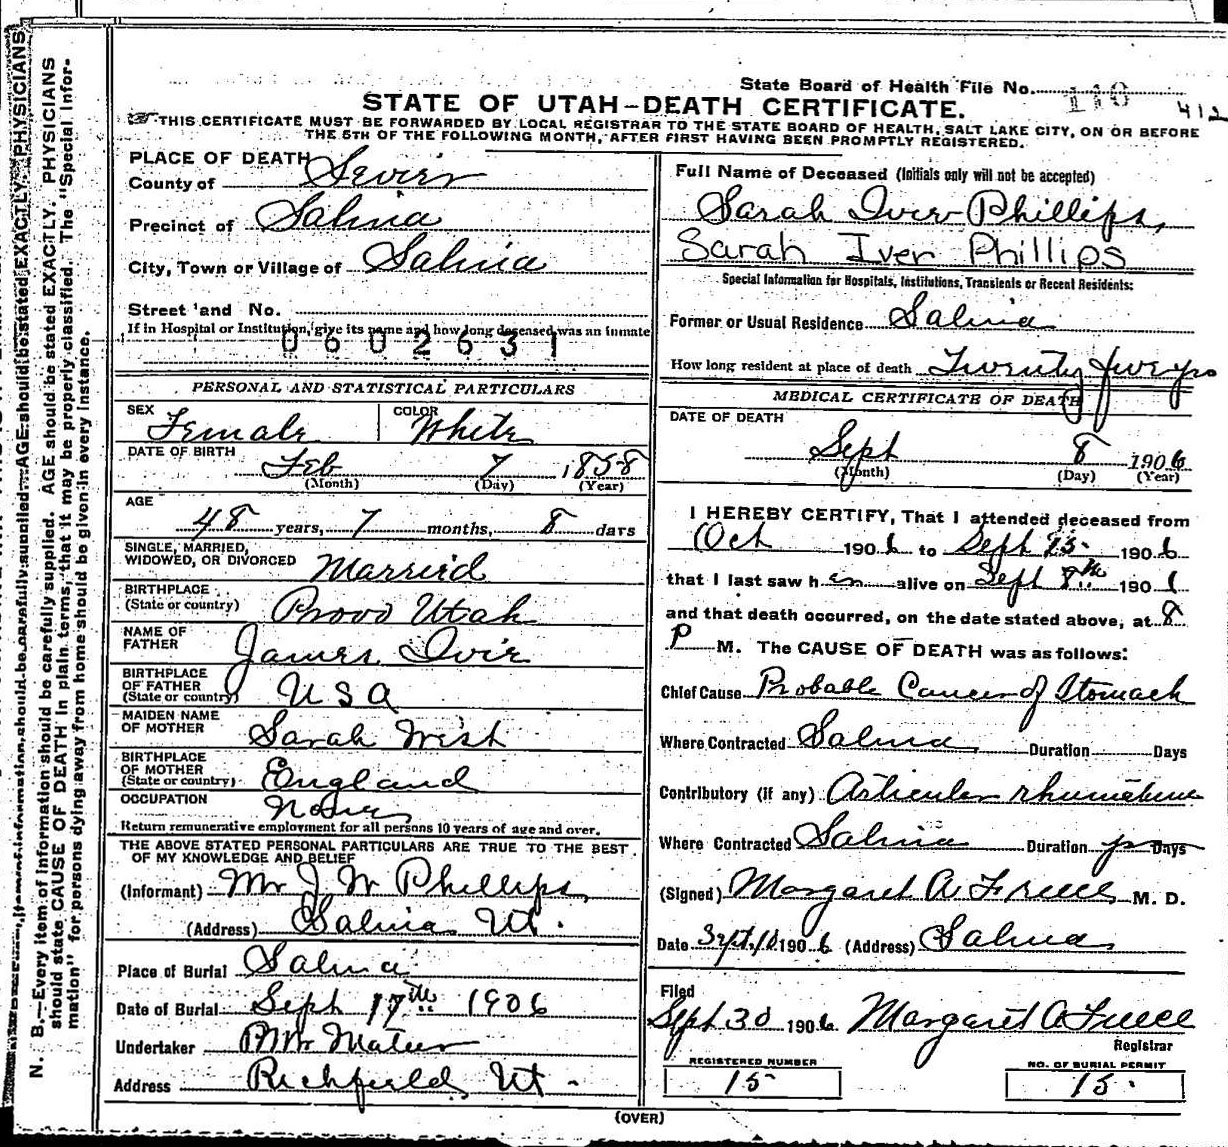 State Board of Health File No. 110
412
STATE OF UTAH—DEATH CERTIFICATE.
THIS CERTIFICATE MUST BE FORWARDED BY LOCAL REGISTRAR TO THE STATE BOARD OF HEALTH, SALT LAKE CITY, ON OR BEFORE
THE 5TH OF THE FOLLOWING MONTH, AFTER FIRST HAVING BEEN PROMPTLY REGISTERED.
PLACE OF DEATH
County of Sevier
Precinct of Salina
City, Town or Village of Salina
Street and No.
If in Hospital or Institution, give its name and how long deceased was an inmate
0602631
PERSONAL AND STATISTICAL PARTICULARS
SEX Female
COLOR White
DATE OF BIRTH Feb 7 1858
(Month) (Day) (Year)
AGE
48 years, 7 months, 8 days
SINGLE, MARRIED,
WIDOWED, OR DIVORCED Married
BIRTHPLACE
(State or country) Provo Utah
NAME OF
FATHER James Ivie
BIRTHPLACE
OF FATHER
(State or country) USA
MAIDEN NAME
OF MOTHER Sarah
BIRTHPLACE
OF MOTHER
(State or country) England
OCCUPATION None
Return remunerative employment for all persons 10 years of age and over.
THE ABOVE STATED PERSONAL PARTICULARS ARE TRUE TO THE BEST
OF MY KNOWLEDGE AND BELIEF
(Informant) Mr J W Phillips
(Address) Salina Ut.
Place of Burial Salina
Date of Burial Sept 17th 1906
Undertaker
Address Richfield Ut.
Full Name of Deceased (Initials only will not be accepted)
Sarah Iver Phillips,
Sarah Iver Phillips
Special Information for Hospitals, Institutions, Transients or Recent Residents:
Former or Usual Residence Salina
How long resident at place of death Twenty
MEDICAL CERTIFICATE OF DEATH
DATE OF DEATH
Sept 8 1906
(Month) (Day) (Year)
I HEREBY CERTIFY, That I attended deceased from
Oct 1906 to Sept 190 6
that I last saw her alive on Sept 8th 190
and that death occurred, on the date stated above, at 8
P M. The CAUSE OF DEATH was as follows:
Chief Cause Probable Cancer of Stomach
Where Contracted Salina Duration Days
Contributory (if any) Articular
Where Contracted Salina Duration Days
(Signed) Margaret A Freece M. D.
Date Sept. 190 6 (Address) Salina
Filed
Sept 30 190 6 Margaret A Freece
Registrar
REGISTERED NUMBER
15
NO. OF BURIAL PERMIT
15.
(OVER)
N. B.—Every item of information should be carefully supplied. AGE should be stated EXACTLY. PHYSICIANS
should state CAUSE OF DEATH in plain terms, that it may be properly classified. The "Special Infor-
mation" for persons dying away from home should be given in every instance.